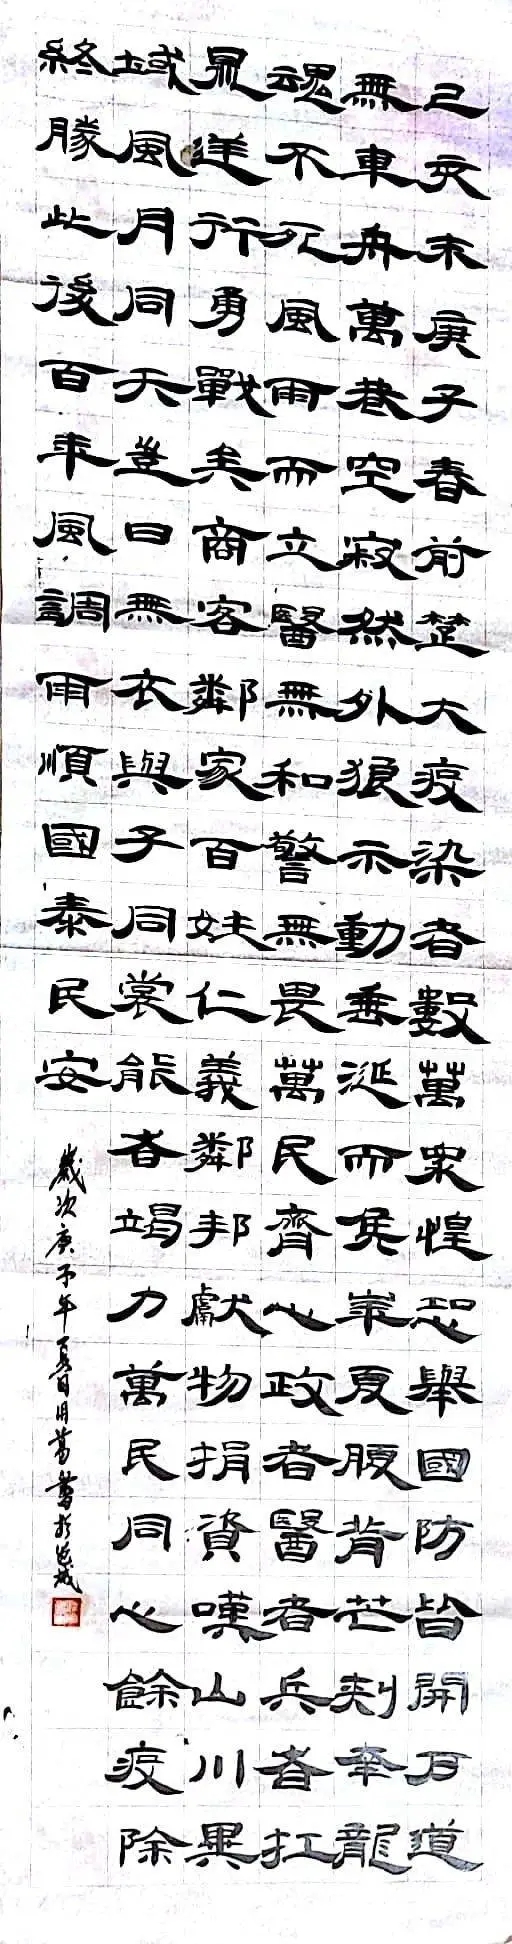 己亥末庚子春前楚大疫染者數萬衆惶恐舉國防皆閉戸道
無車舟萬巷空寂然外狼示動垂涎而矣華夏腹背芒刺幸龍
魂不死風雨而立醫無和警無畏萬民齊心政者醫者兵者扛
鼎逆行勇戰矣商客鄰家百姓仁義鄰邦獻物捐資嘆山川異
域風月同天豈曰無衣與子同裳能者竭力萬民同心餘疫除
終勝此後百年風調雨順國泰民安
歲次庚子年夏日月